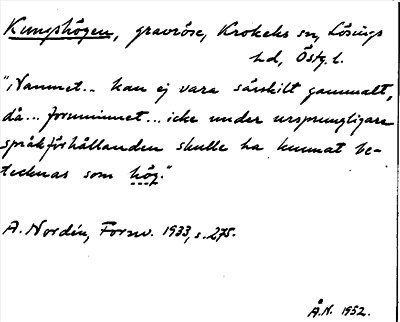 Kungshögen, gravröse, Krokeks sn, Lösings
hd, Östg. l.
"Namnet... kan ej vara särskilt gammalt,
då... fornminnet... icke under ursprungligare
språkförhållanden skulle ha kunnat be-
tecknas som hög."
A. Nordén, Fornv. 1933, s. 275.
Å.N. 1952.